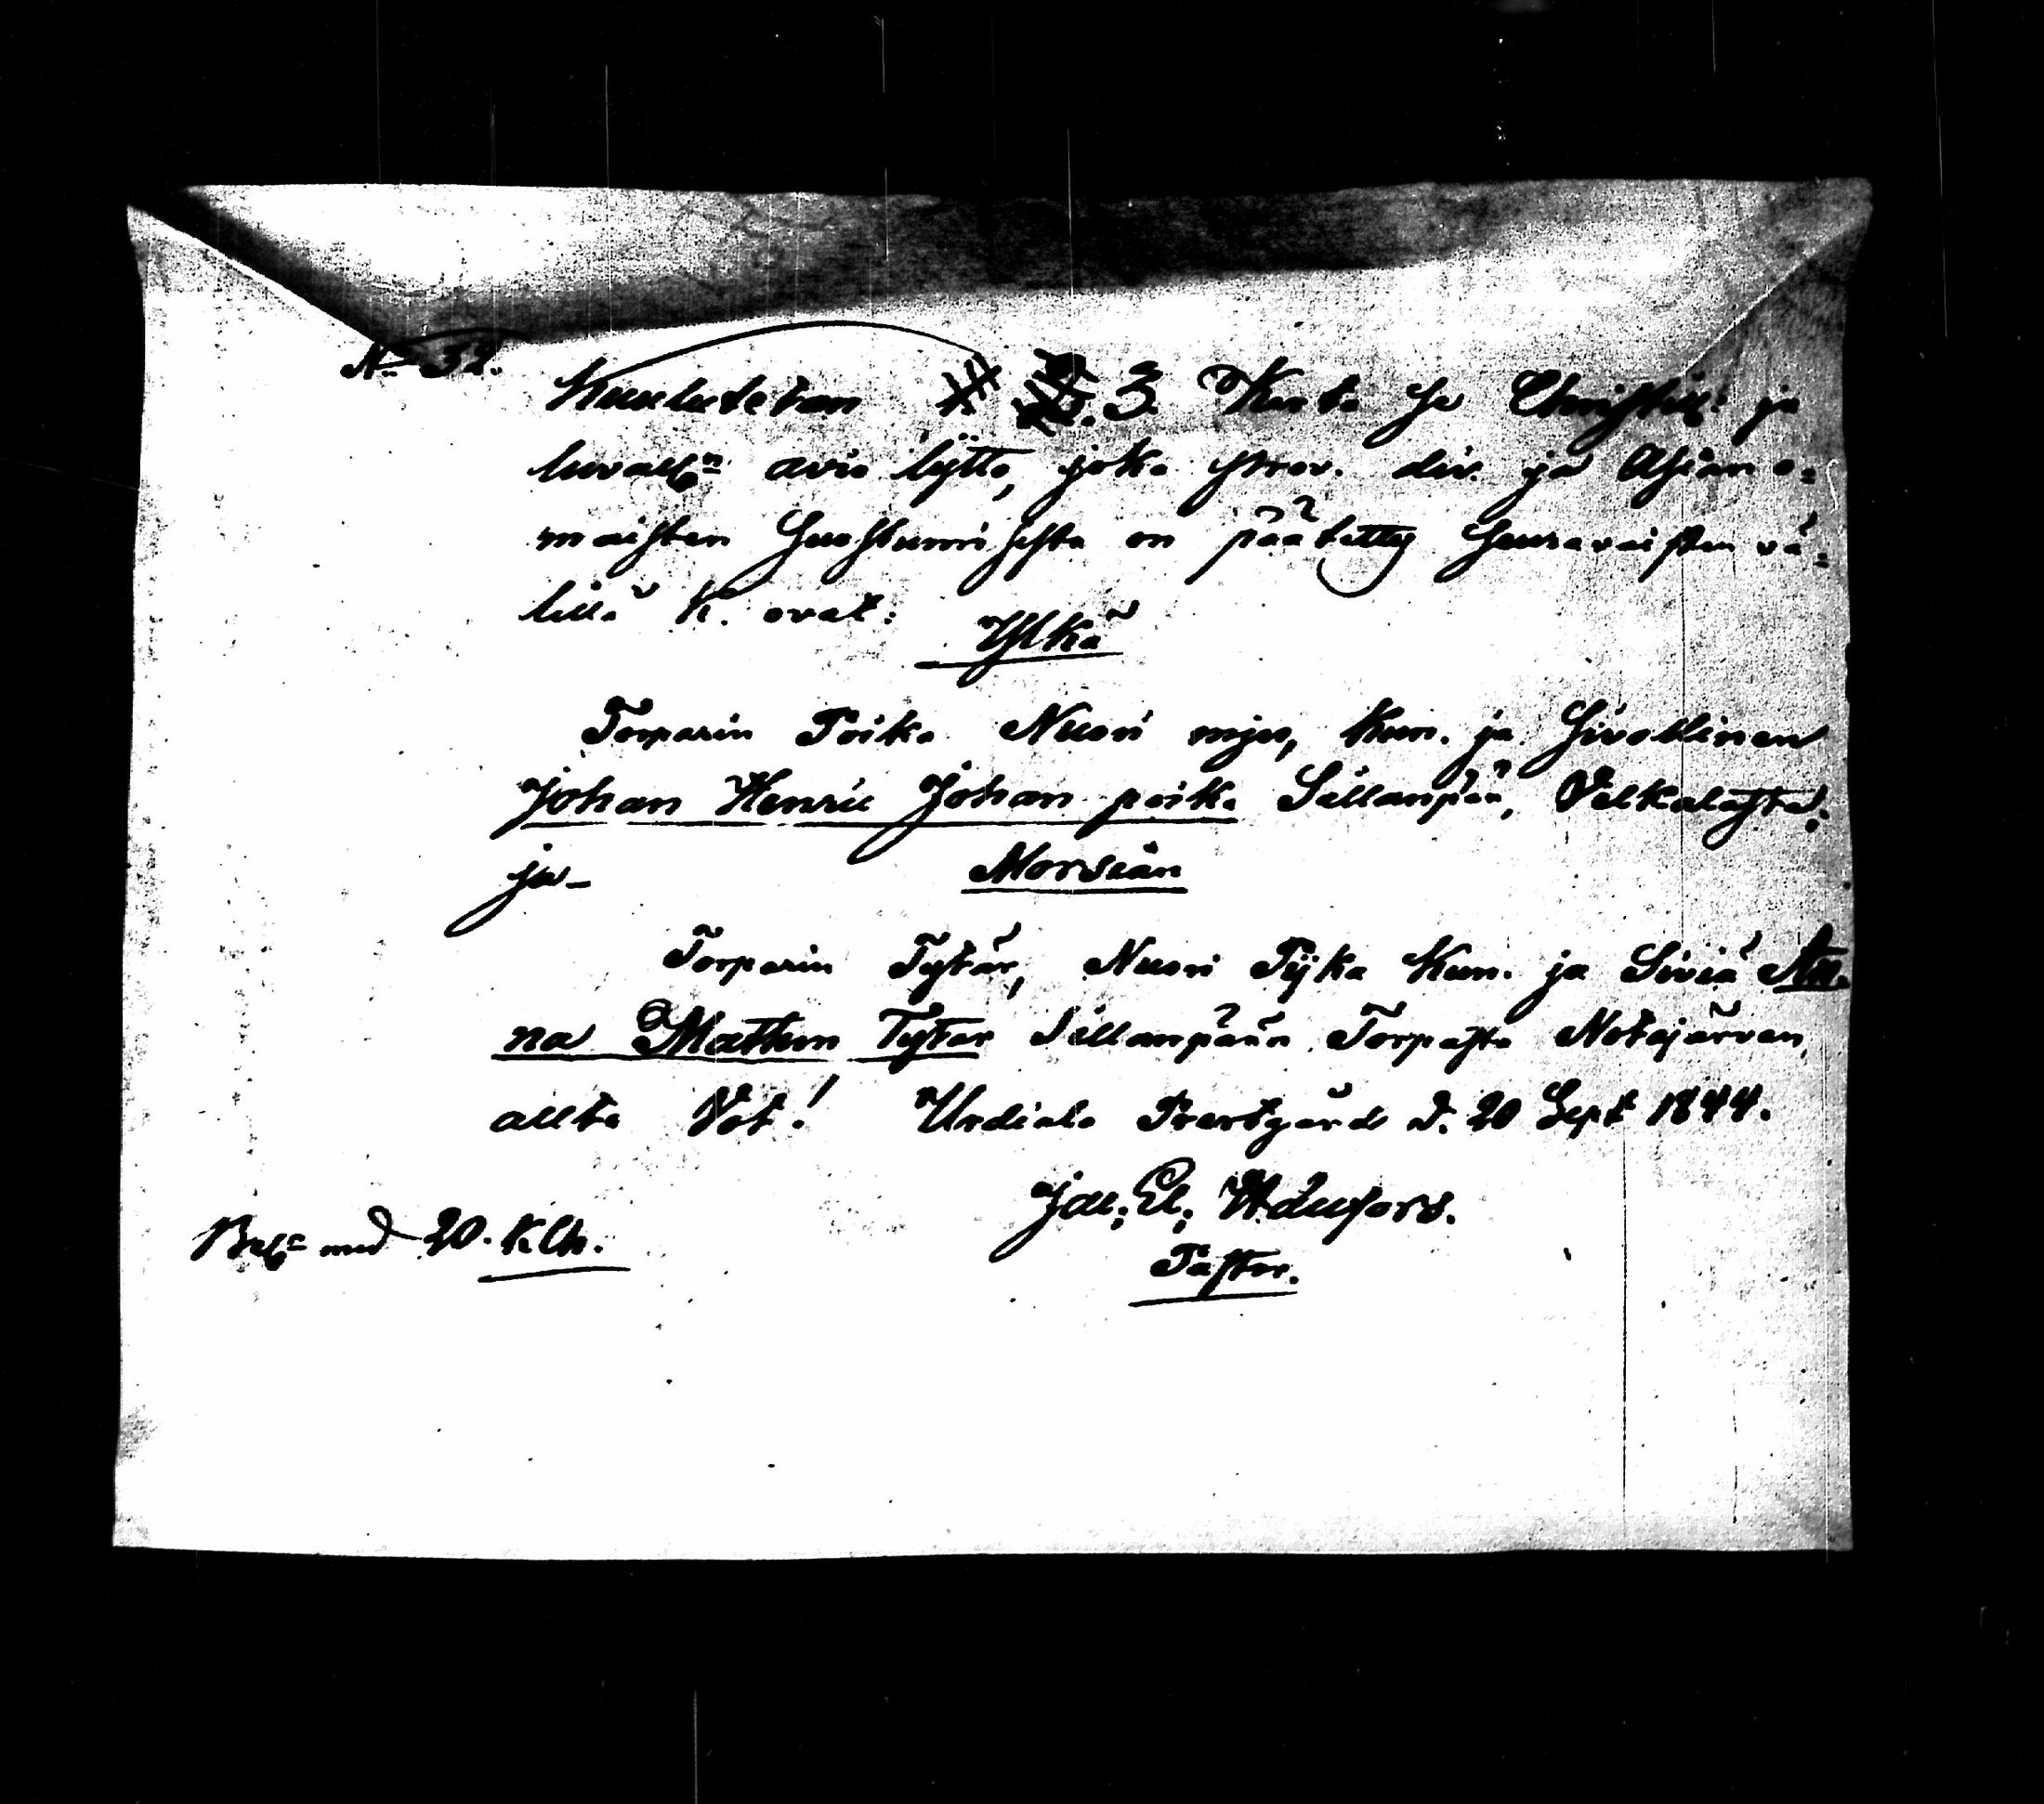 No 32.
Kuulutetan 3. Kerta se Christil: ja
luvallnn avio käyttö, joka strax. div. ja Asian o=
maisten Suostumisesta on päätetty Seuravaisten vä=
lillä k. ovat:
Ylkä
Torparin Poika Nuori mjes, Kun. ja Sivollinen
Johan Henric Johan poika Sillanpää, Velkalasta;
ja- Morsian
Torparin Tytär, Nuori Pijka Kun. ja Siviä An=
na Matten Tytar Sillanpään Torpasta Notajärven
allta Vot! Urdiala Prestgård d. 20 Sept 1844.
Jac: El:
Pastor.
med 20. K.